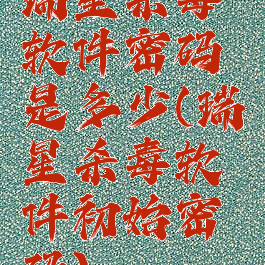 瑞星杀毒
软件密码
是多少(瑞
星杀毒软
件初始密
码)